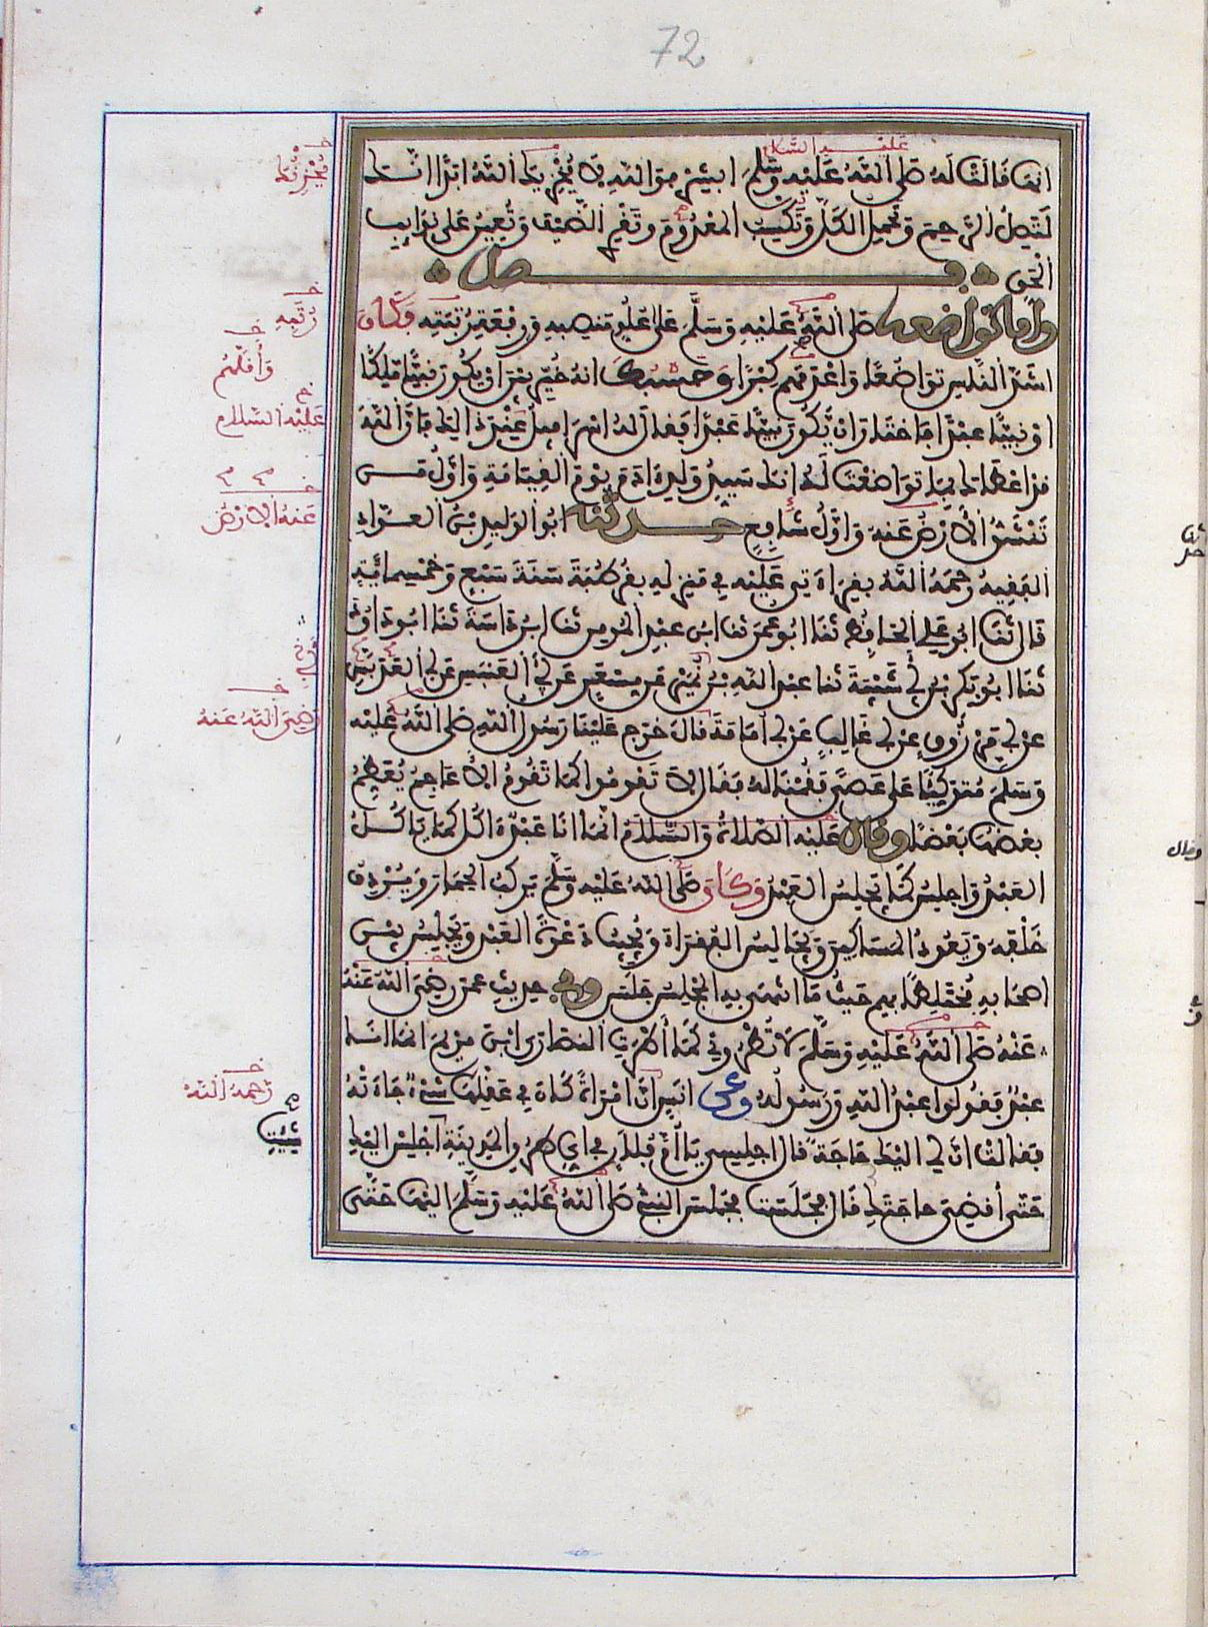 72
عليه السلام
انها قالت له صلى الله عليه وسلم ابشر فوالله لا يخزيك الله ابدا انك
لتصل الرحم وتحمل الكل وتكسب المعدوم وتقري الضيف وتعين على نوايب
الحق فصل
واما تواضعه صلى الله عليه وسلم على علو منصبه ورفعة رتبته فكان
اشد الناس تواضعا واعدمهم كبرا وحسبك انه خير بين ان يكون نبيا ملكا
او نبيا عبدا فاختار ان يكون نبيا عبدا فقال له اسرافيل عند ذلك فان الله
قد اعطاك بما تواضعت له انك سيد ولد ادم يوم القيامة واول من
تنشق الارض عنه واول شافع حدثنا ابو الوليد بن العواد
الفقيه رحمه الله بقراءتي عليه في منزله بقرطبة سنة سبع وخمسمائة
قال ثنا ابو علي الحافظ ثنا ابو عمر ثنا ابن عبد المومن ثنا ابن داسة ثنا ابو داود
ثنا ابو بكر بن ابي شيبة ثنا عبد الله بن نمير عن مسعر عن ابي العنبس عن ابي العدبس
عن ابي مرزوق عن ابي غالب عن ابي امامة قال خرج علينا رسول الله صلى الله عليه
وسلم متوكئا على عصى فقمنا له فقال لا تقوموا كما تقوم الاعاجم يعظم
بعضها بعضا وقال عليه الصلاة والسلام انما انا عبد اكل كما ياكل
العبد واجلس كما يجلس العبد وكان صلى الله عليه وسلم يركب الحمار ويردف
خلفه ويعود المساكين ويجالس الفقراء ويجيب دعوة العبد ويجلس بين
اصحابه مختلطا بهم حيث ما انتهى به المجلس جلس وفي حديث عمر رضي الله عنه
عنه صلى الله عليه وسلم لا تطروني كما اطرت النصارى ابن مريم انما انا
عبد فقولوا عبد الله ورسوله وعن انس ان امراة كان في عقلها شيء جاءته
فقالت ان لي اليك حاجة قال اجلسي يا ام فلان في اي طرق المدينة اجلس اليك
حتى اقضي حاجتك قال فجلست فجلس النبي صلى الله عليه وسلم اليها حتى
يحزنك
رتبه
واقلهم
عليه السلام
عنه الارض
رضي الله عنه
رحمه الله
شئت